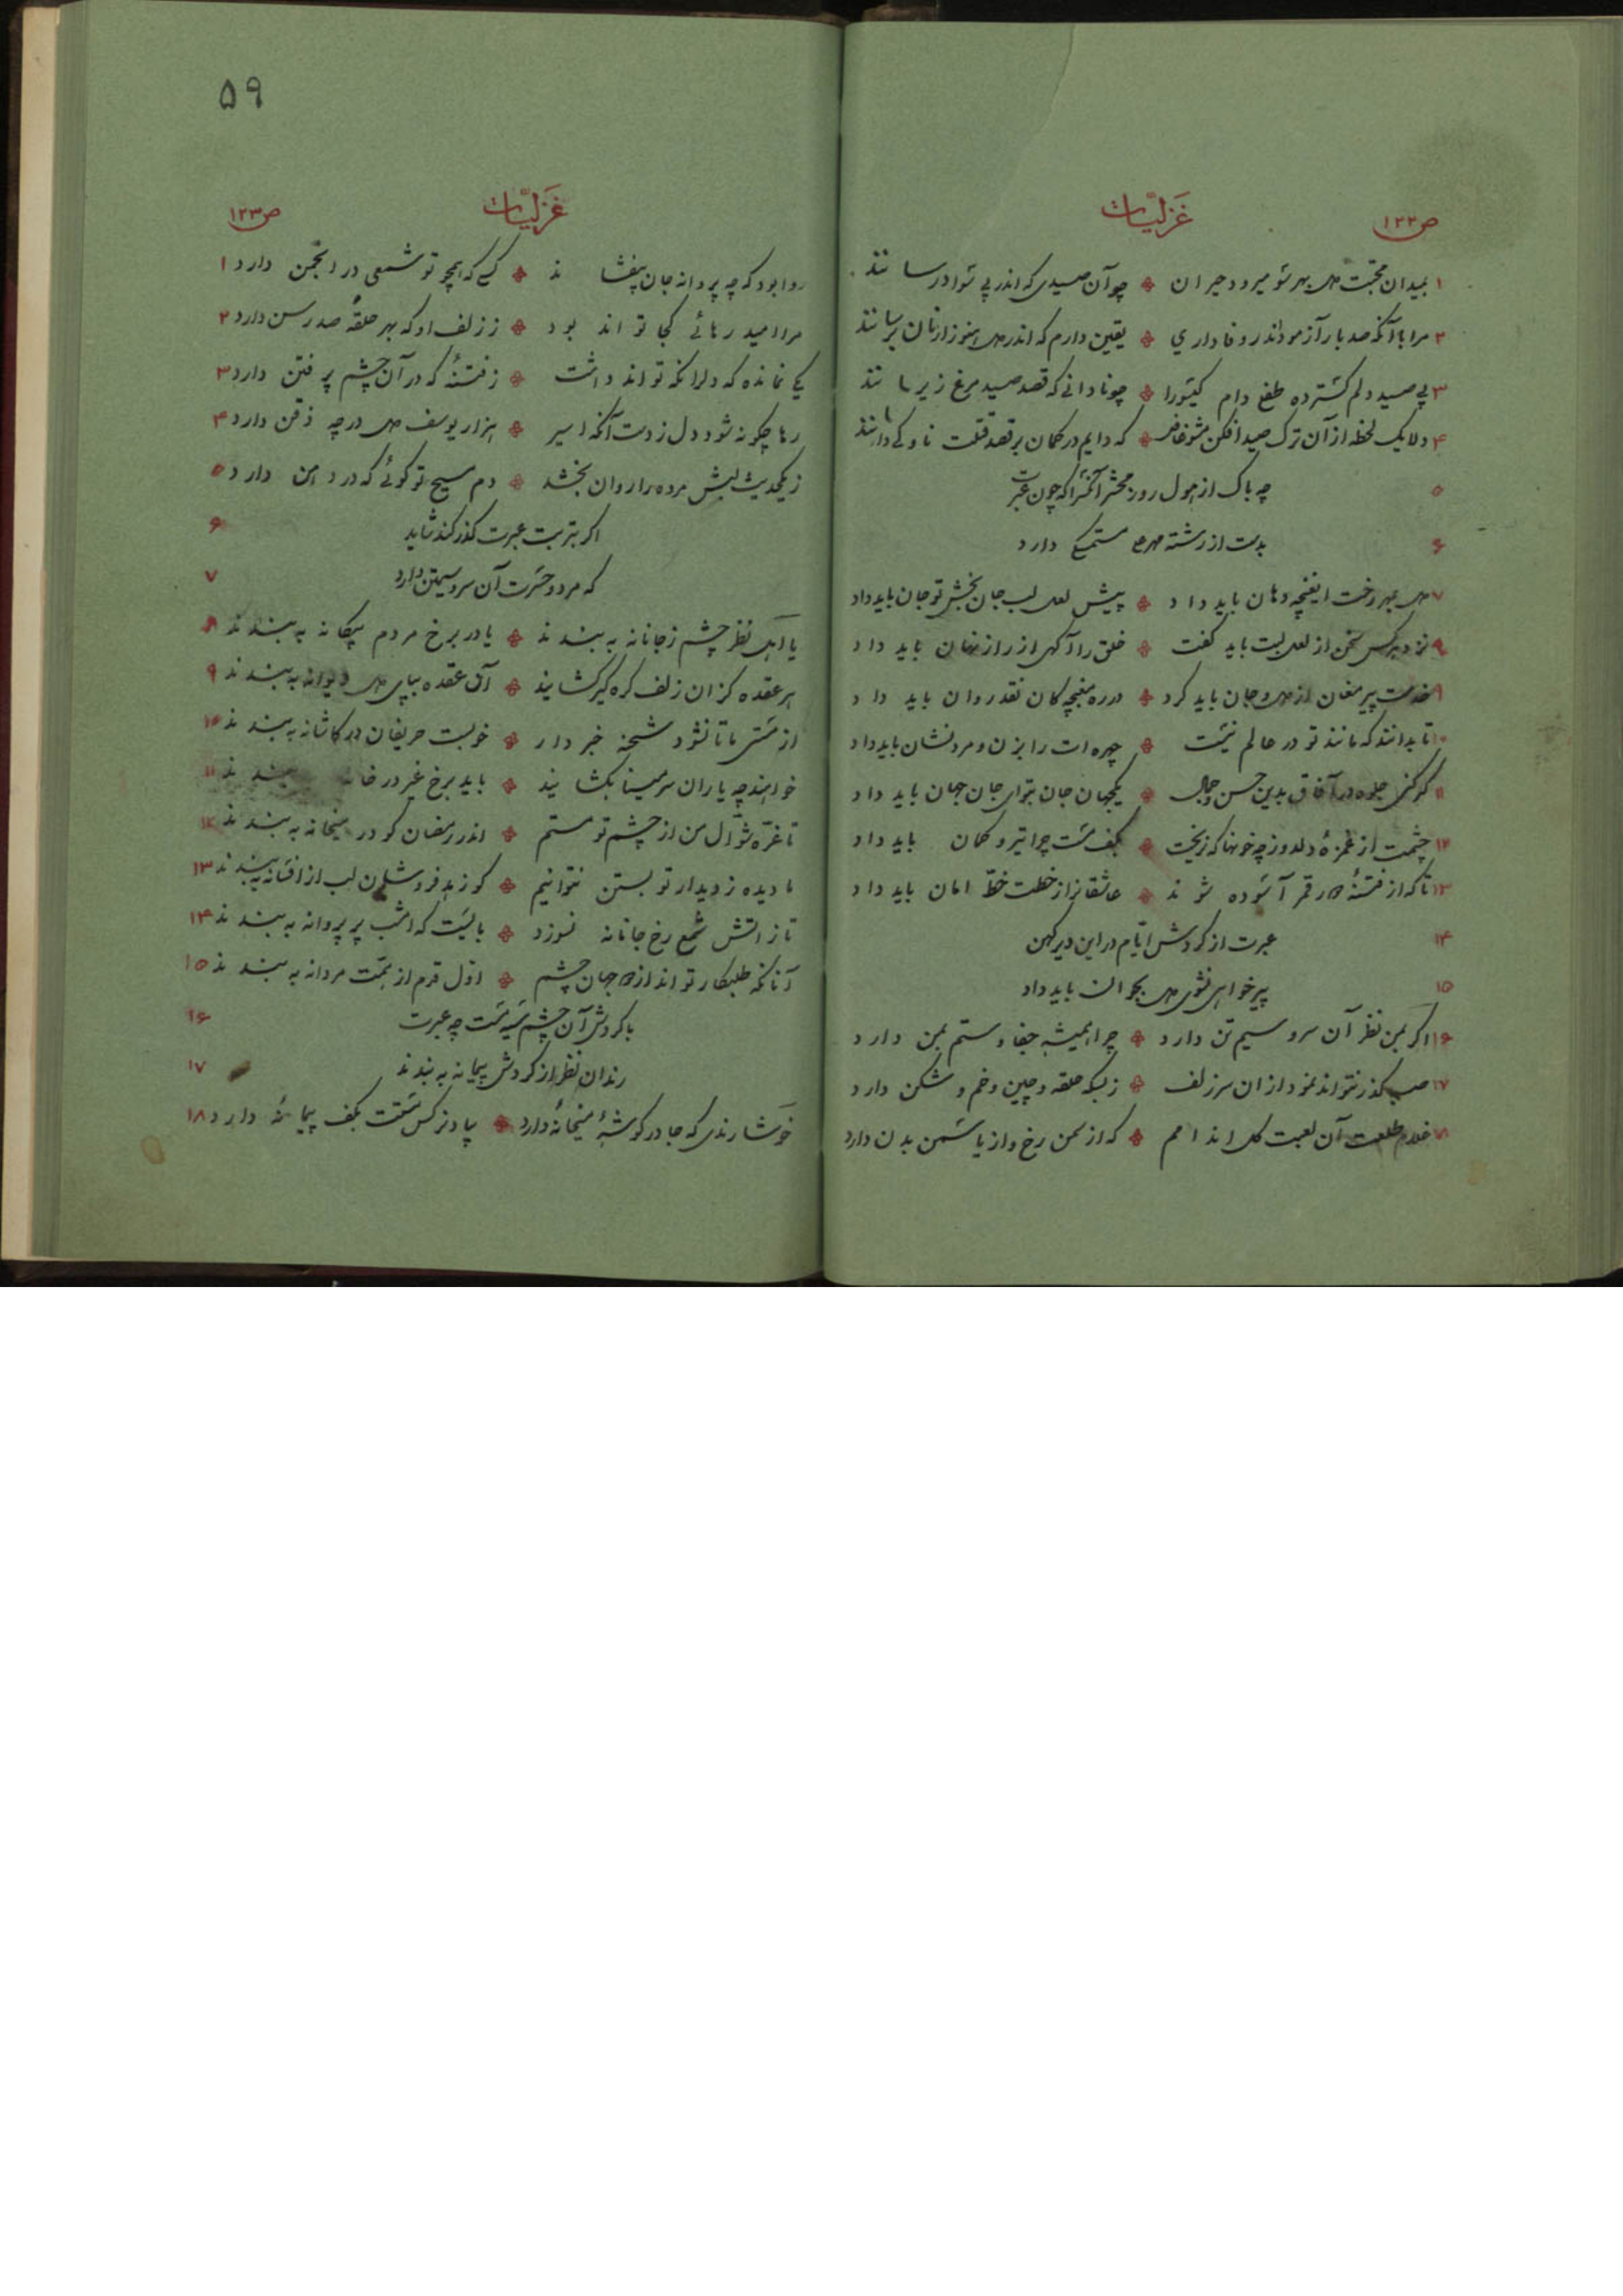 ۵۹
ص۱۲۲ غزلیّات
۱ بمیدان محبّت دل بهر سو میرود حیران ❖ چو آن صیدی که اندر پی سوادر سانند
۲ مرا با آنکه صد بار آزمود اندر وفاداری ❖ یقین دارم که اندر دل هنوز از
۳ پی صید دلم گسترده طفلی دام گیسو را ❖ چو نادانی که قصد صید مرغ زیر سا نند
۴ دلا یک لحظه از آن ترک صید افکن مشو غافل ❖ که دایم در کمان بر قصد قتلت ناوکی دارند
۵ چه باک از هول روز محشر آنکس را که چون عبرت
۶ بدست از رشته مهر مستمسکی دارد
۷ دل بمهر رخت ایغنچه دهان باید داد ❖ پیش لعل لب جان بخش تو جان باید داد
۸ نزد هرکس سخن از لعل لبت باید گفت ❖ خلق را آگهی از راز نهان باید داد
۹ خدمت پیر مغان از دل و جان باید کرد ❖ در ره مغبچه کان نقد روان باید داد
۱۰ تا بدانند که مانند تو در عالم نیست ❖ چهره ات را بزن و مرد نشان باید داد
۱۱ گر کنی جلوه در آفاق بدین حسن و جمال ❖ یکجهان جان بتو ای جان جهان باید داد
۱۲ چشمت از غمزهٔ دلدوز چه خونها که نریخت ❖ بکف مست چرا تیر و کمان باید داد
۱۳ تا که از فتنهٔ دور قمر آسوده شوند ❖ عاشقانرا ز خطت خطّ امان باید داد
۱۴ عبرت از گردش ایّام در این دیر کهن
۱۵ پیر خواهی نشوی دل بجوانان باید داد
۱۶ اگر بمن نظر آن سرو سیم تن دارد ❖ چرا همیشه جفا و ستم بمن دارد
۱۷ صبا گذر نتواند نمود از ان سر زلف ❖ زبسکه حلقه و چین و خم و شکن دارد
۱۸ غلام طلعت آن لعبت گل اندامم ❖ که از سمن رخ و از یاسمن بدن دارد
غزلیّات ص۱۲۳
روا بود که چه پروانه جان بیفشاند ❖ کسی که همچو تو شمعی در انجمن دارد ۱
مرا امید رهائی کجا تواند بود ❖ ز زلف او که بهر حلقهٔ صد رسن دارد ۲
کی نمانده که دل را نگه تواند داشت ❖ ز فتنهٔ که در آن چشم پر فتن دارد ۳
رها چگونه شود دل ز دست آنکه اسیر ❖ هزار یوسف دل در چه ذقن دارد ۴
ز یکحدیث لبش مرده را روان بخشد ❖ دم مسیح تو گوئی که در دهن دارد ۵
اگر بتربت عبرت گذر کند شاید ۶
که مرد و حسرت آن سرو سیمتن دارد ۷
یا اهل نظر چشم ز جانانه به بندند ❖ یا در برخ مردم بیگانه به بندند ۸
هر عقده کز ان زلف گره گیر گشایند ❖ آن عقده بپای دل دیوانه به بندند ۹
از مستی ما تا نشود شحنه خبردار ❖ خوبست حریفان در کاشانه به بندند ۱۰
خواهند چه یاران سر مینا بگشایند ❖ باید برخ غیر در خانه به بندند ۱۱
تا غرّه شوّال من از چشم تو مستم ❖ اندر رمضان گو در میخانه به بندند ۱۲
ما دیده ز دیدار تو بستن نتوانیم ❖ گو زهد فروشان لب از افسانه به بندند ۱۳
تا ز اتش شمع رخ جانانه نسوزد ❖ بایست که امشب پر پروانه به بندند ۱۴
آنانکه طلبکار تو اند از دو جهان چشم ❖ اوّل قدم از همّت مردانه به بندند ۱۵
با گردش آن چشم سیه مست چه عبرت ۱۶
رندان نظر از گردش پیمانه به بندند ۱۷
خوشا رندی که جا در گوشهٔ میخانهٔ دارد ❖ بیاد نرگس مستت بکف پیمانهٔ دارد ۱۸